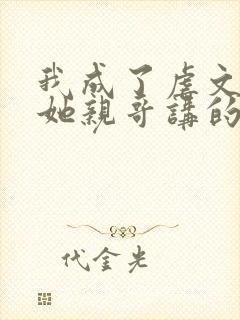 我成了虐文
她親哥講的
代金光